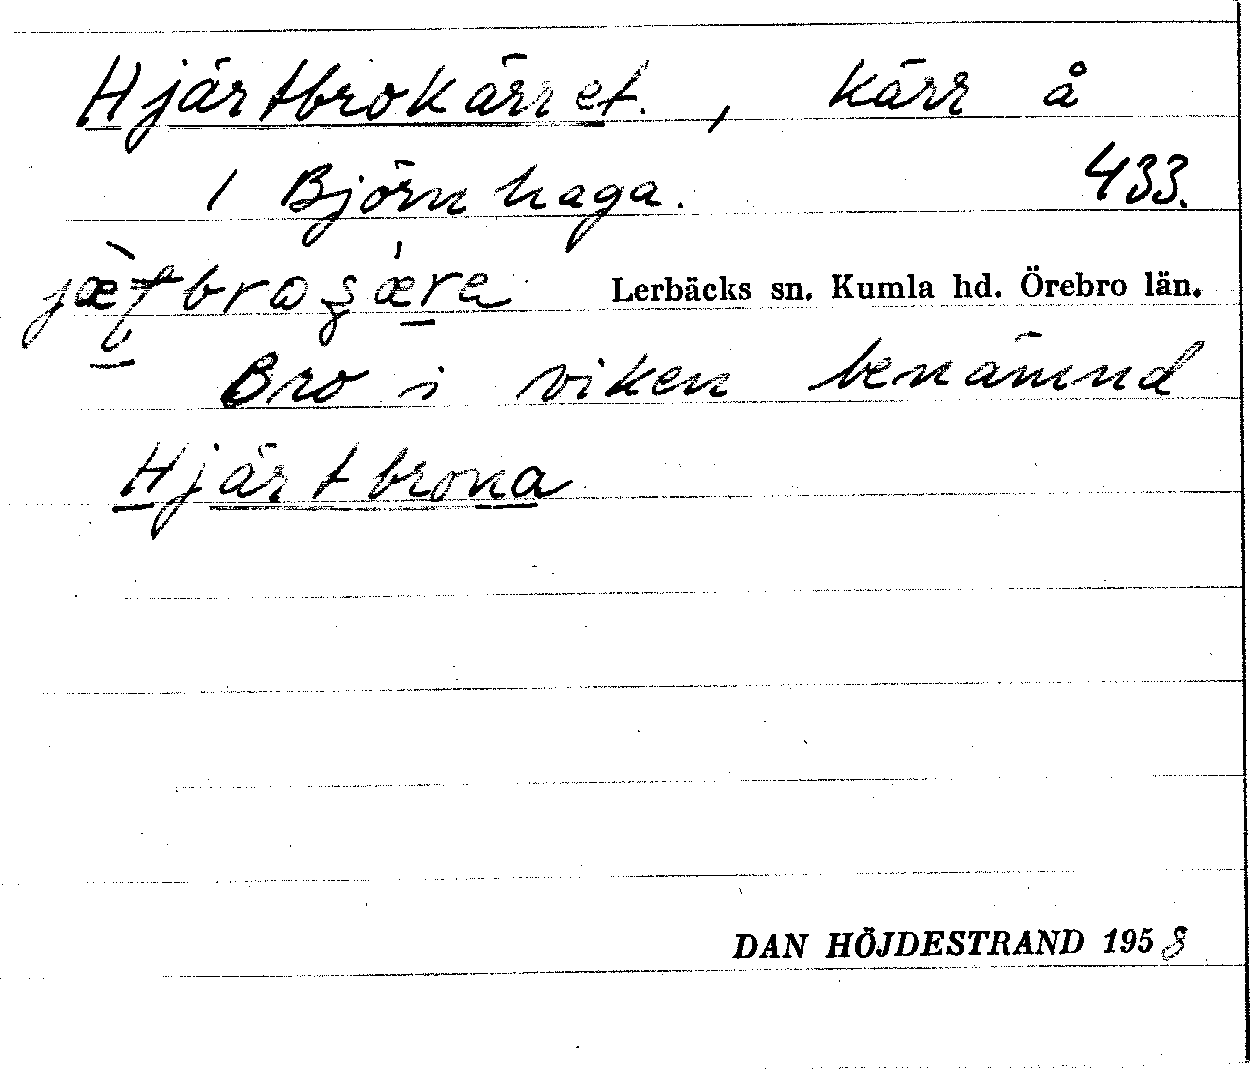 Hjärtbrokärret., kärr å
1 Björnhaga. 433.
Lerbäcks sn. Kumla hd. Örebro län.
Bro i viken benämnd
Hjärtbrona
DAN HÖJDESTRAND 1958